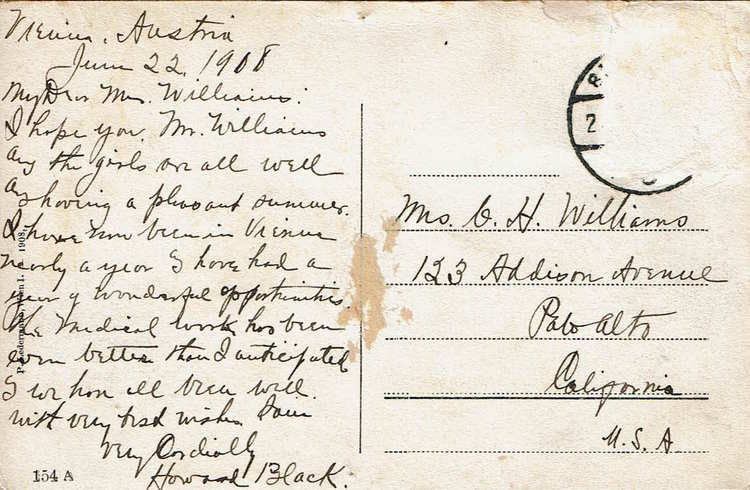 Vienna, Austria
June 22, 1908
My Dear Mrs. Williams:
I hope you, Mr. Williams
and the girls are all well
and having a pleasant summer.
I have now been in Vienna
nearly a year & have had a
year of wonderful opportunities
The Medical work has been
even better than I anticipated
& we have all been well.
With very best wishes I am
Very Cordially
Howard Black.
154 A
2
Mrs. C. H. Williams
123 Addison Avenue
Palo Alto
California
U. S. A.